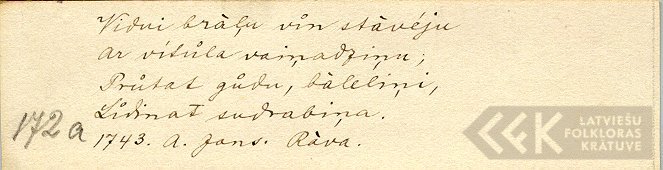 Vidui brāļu vin̂ stāvēju
ar vîtûla vaiņadziņu;
Prûtat gûdu, bāleliņi,
Lîdinat sudrabiņa.
172 a
1743. A. Jans. Rāva.
LATVIEŠU
FOLKLORAS
KRĀTUVE